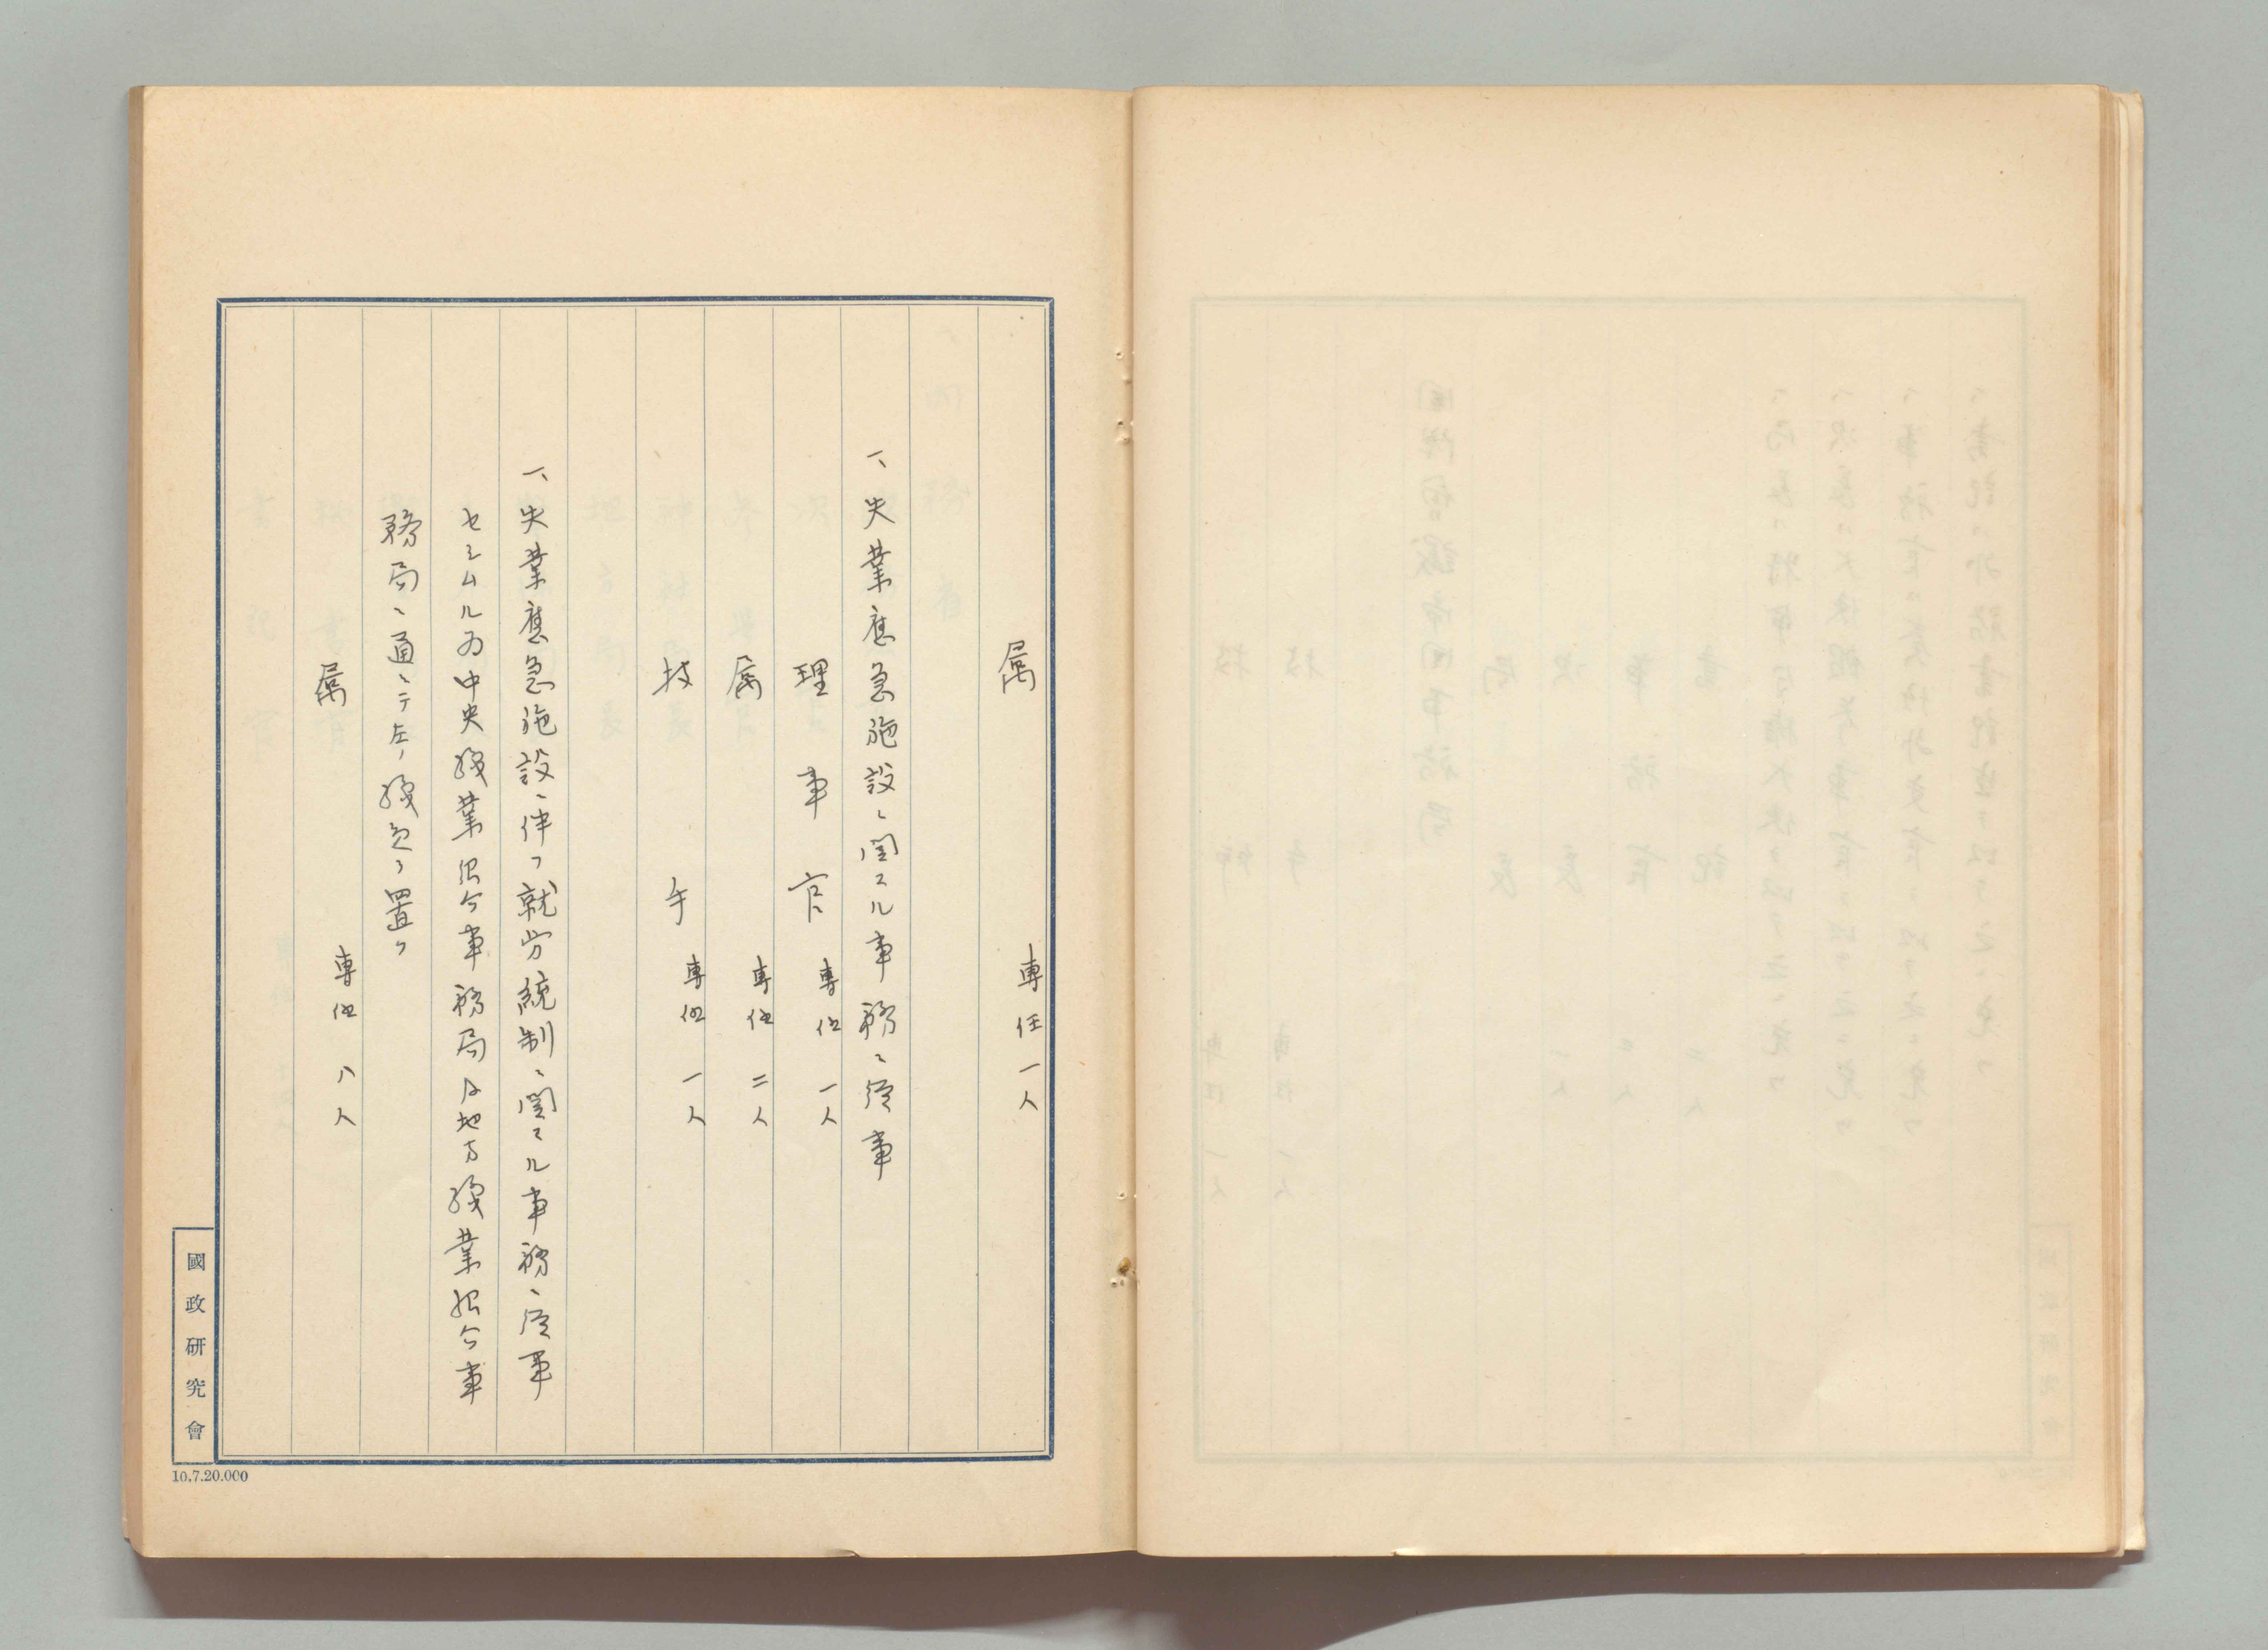 属 専任一人
一、失業應急施設ニ関スル事務ニ從事
理事官 専任一人
属 専任二人
技手 専任一人
一、失業應急施設ニ伴フ就労統制ニ関スル事務ニ從事
セシムル為中央職業紹介事務局及地方職業紹介事
務局ヲ通シテ左ノ職員ヲ置ク
属 専任八人
國政研究會
10.7.20.000